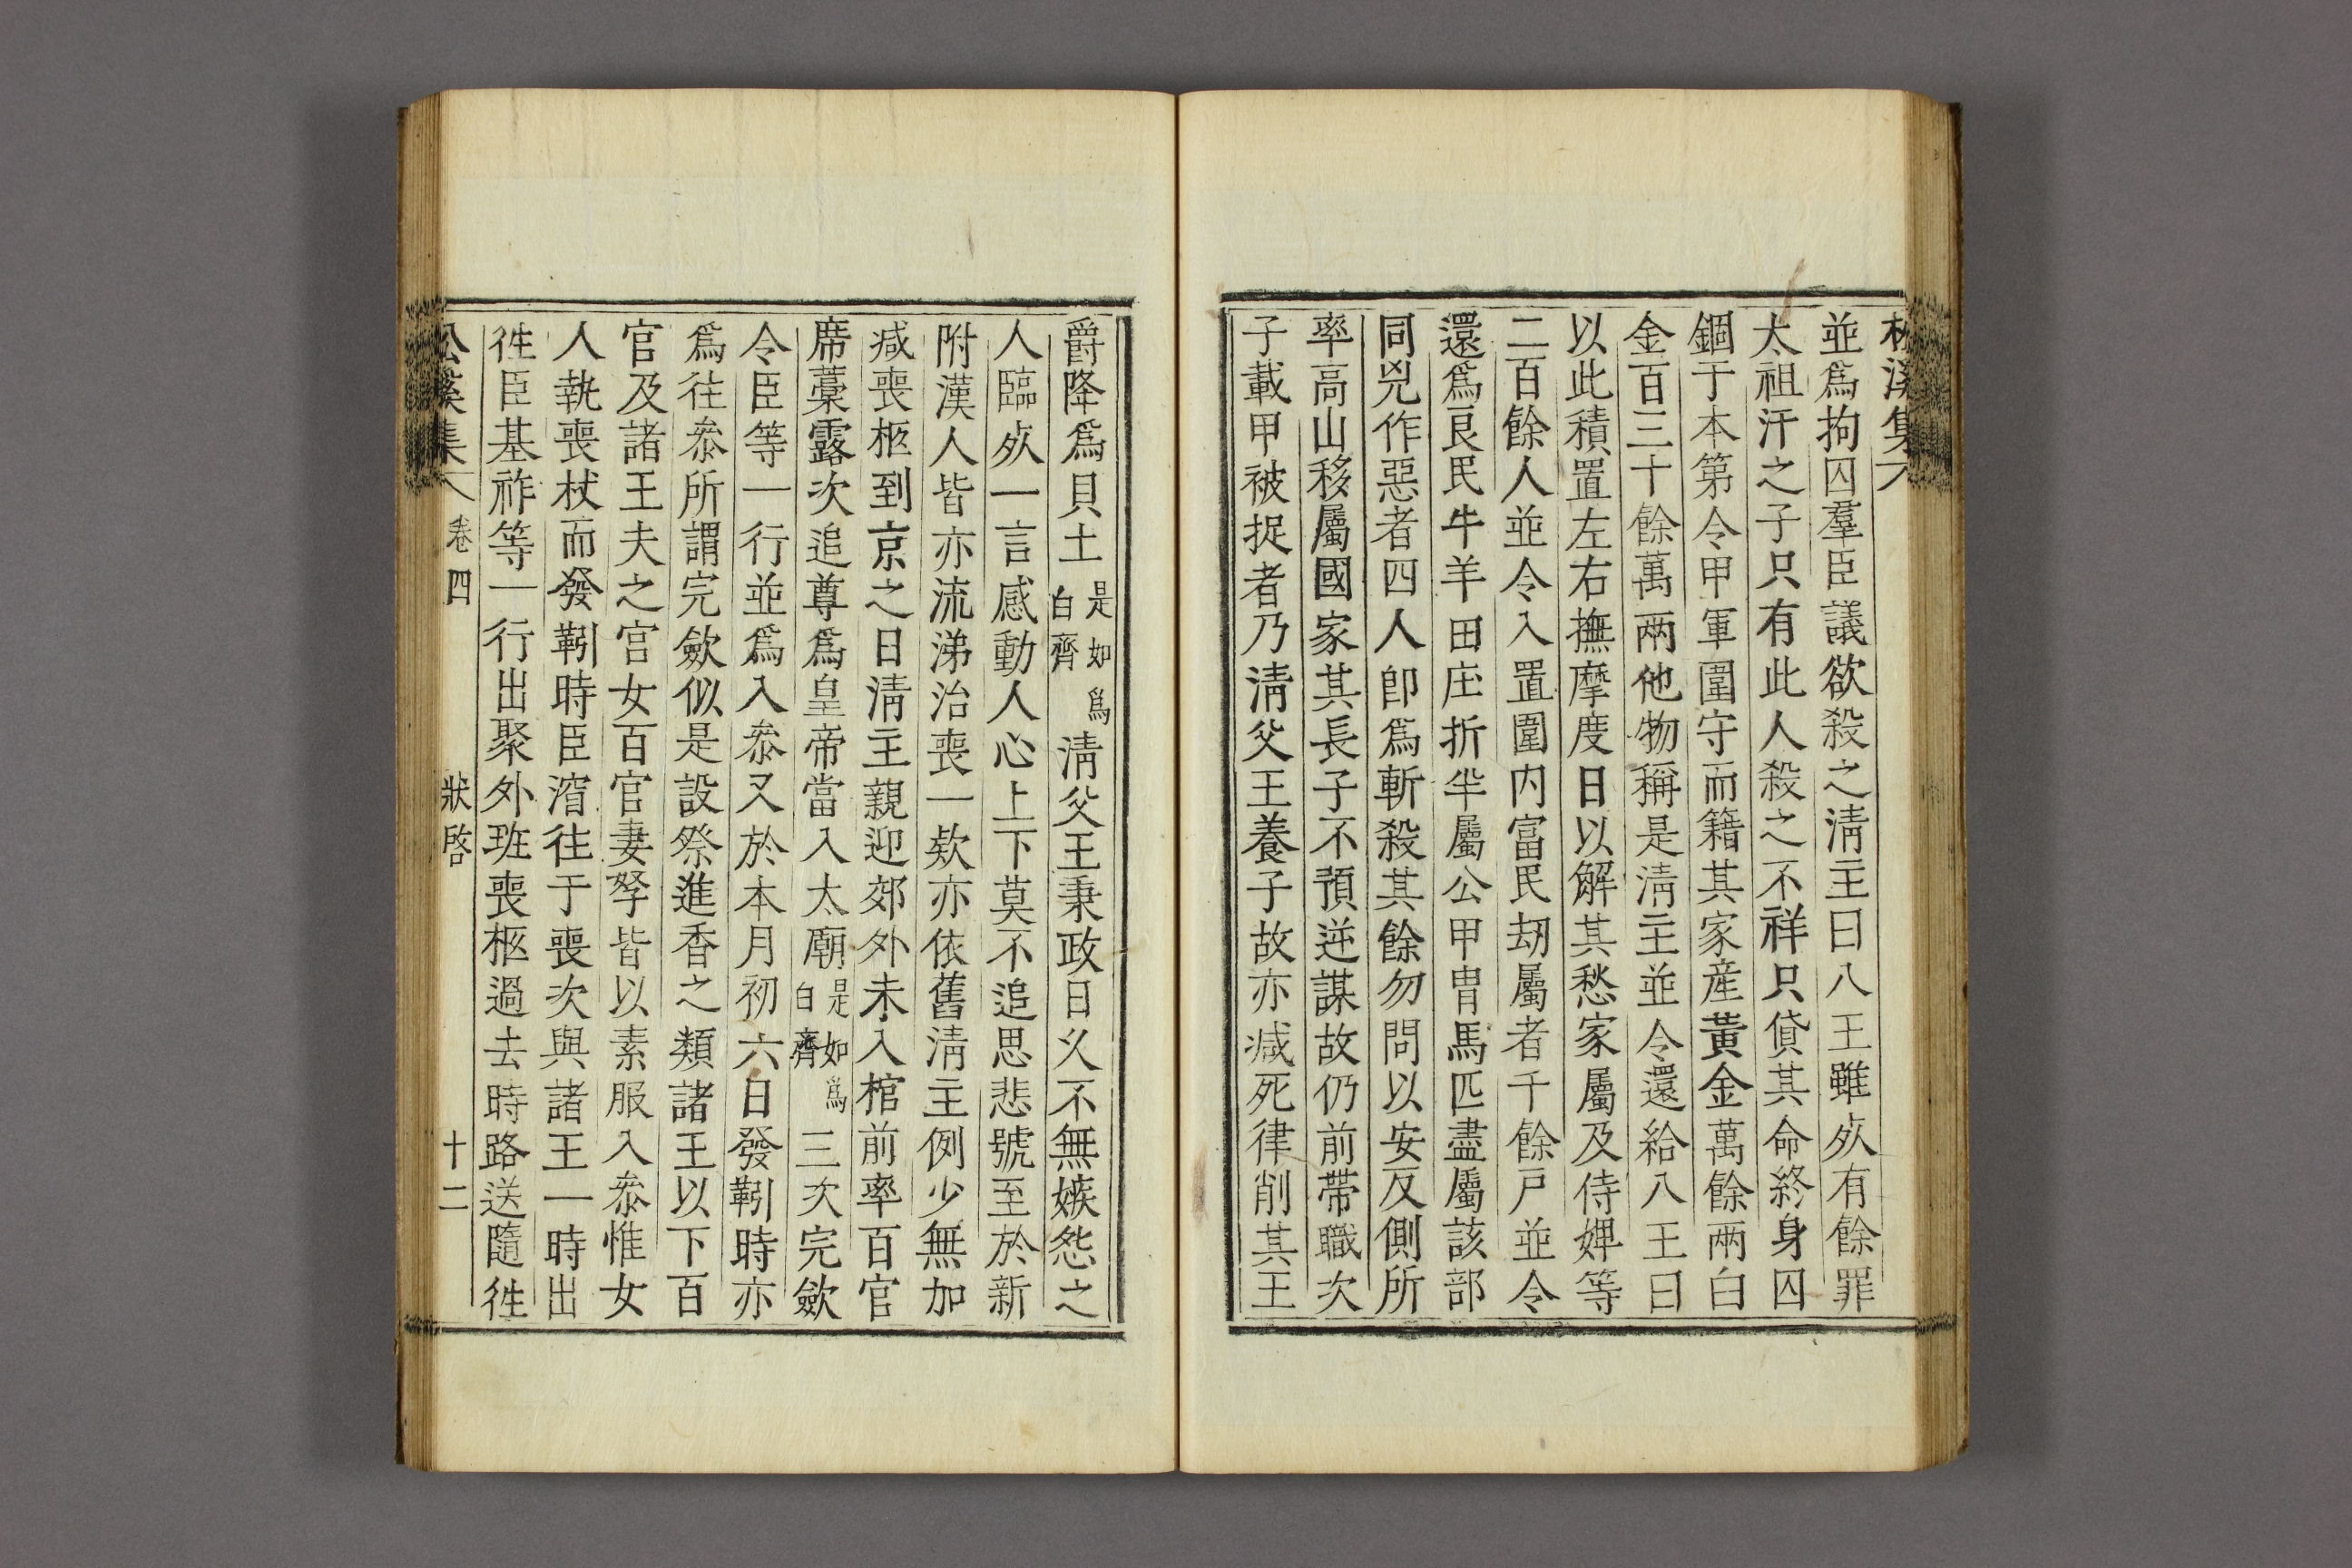 松溪集
並爲拘囚羣臣議欲殺之淸主曰八王雖死有餘罪
太祖汗之子只有此人殺之不祥只貸其命終身囚
錮于本第令甲軍圍守而籍其家産黃金萬餘兩白
金百三十餘萬兩他物稱是淸主並令還給八王曰
以此積置左右撫摩度日以解其愁家屬及侍婢等
二百餘人並令入置圍内富民刼屬者千餘戶並令
還爲良民牛羊田庄折半屬公甲冑馬匹盡屬該部
同兇作惡者四人卽爲斬殺其餘勿問以安反側所
率高山移屬國家其長子不預逆謀故仍前帶職次
子載甲被捉者乃淸父王養子故亦减死律削其王
爵降爲貝土是如爲白齊淸父王秉政日久不無嫉怨之
人臨死一言感動人心上下莫不追思悲號至於新
附漢人皆亦流涕治喪一欵亦依舊淸主例少無加
减喪柩到京之日淸主親迎郊外未入棺前率百官
席藁露次追尊爲皇帝當入太廟是如爲白齊三次完歛
令臣等一行並爲入叅又於本月初六日發靷時亦
爲往叅所謂完歛似是設祭進香之類諸王以下百
官及諸王夫之宮女百官妻孥皆以素服入叅惟女
人執喪杖而發靷時臣㴐往于喪次與諸王一時出
徃臣基祚等一行出聚外班喪柩過去時路送隨徃
松溪集 卷四 狀啓 十二